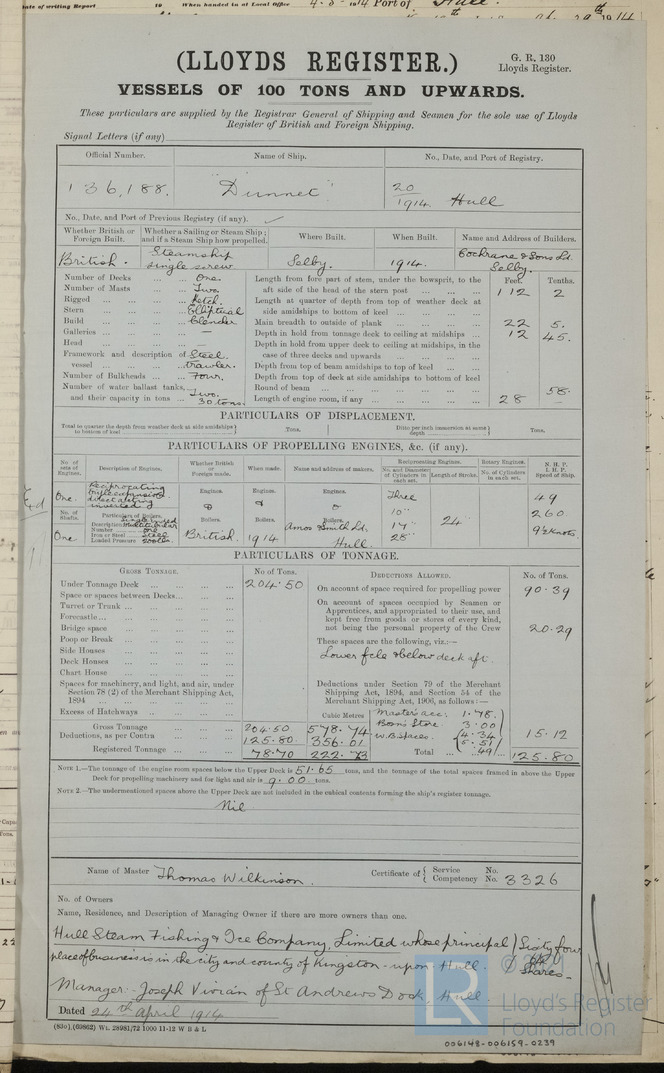 ate of writing Report 19 When handed in at Local Office 4-5-1914 Port of Hull.
(LLOYDS REGISTER.)
G. R. 130
Lloyds Register.
VESSELS OF 100 TONS AND UPWARDS.
These particulars are supplied by the Registrar General of Shipping and Seamen for the sole use of Lloyds
Register of British and Foreign Shipping.
Signal Letters (if any)
Official Number. Name of Ship. No., Date, and Port of Registry.
136,188. "Dunnet" 20/1914. Hull
No., Date, and Port of Previous Registry (if any). ✓
Whether British or Foreign Built. Whether a Sailing or Steam Ship; and if a Steam Ship how propelled. Where Built. When Built. Name and Address of Builders.
British. Steamship single screw Selby. 1914. Cochrane & Sons Ld. Selby.
Feet. Tenths.
Number of Decks ... ... One.
Number of Masts ... ... Two.
Rigged ... ... ... Ketch.
Stern ... ... ... Elliptical
Build ... ... ... Clencher
Galleries ... ... ... —
Head ... ... ... —
Framework and description of vessel ... ... Steel. trawler.
Number of Bulkheads ... Four.
Number of water ballast tanks, and their capacity in tons ... Two. 30 tons.
Length from fore part of stem, under the bowsprit, to the aft side of the head of the stern post ... ... ... 112 2
Length at quarter of depth from top of weather deck at side amidships to bottom of keel ... ... ...
Main breadth to outside of plank ... ... ... 22 5.
Depth in hold from tonnage deck to ceiling at midships ... 12 45.
Depth in hold from upper deck to ceiling at midships, in the case of three decks and upwards ... ... ...
Depth from top of beam amidships to top of keel ... ...
Depth from top of deck at side amidships to bottom of keel
Round of beam ... ... ... 58.
Length of engine room, if any ... ... ... 28 —
PARTICULARS OF DISPLACEMENT.
Total to quarter the depth from weather deck at side amidships to bottom of keel Tons. Ditto per inch immersion at same depth Tons.
PARTICULARS OF PROPELLING ENGINES, &c. (if any).
No. of sets of Engines. Description of Engines. Whether British or Foreign made. When made. Name and address of makers. Reciprocating Engines. No. and Diameter of Cylinders in each set. Length of Stroke. Rotary Engines. No. of Cylinders in each set. N. H. P. I. H. P. Speed of Ship.
One. Reciprocating triple expansion direct acting inverted Engines. Engines. Engines. Three 49
No. of Shafts. Particulars of Boilers. Boilers. Boilers. Boilers. 10" 260
Description Single ended Multitubular
Number One
Iron or Steel Steel
Loaded Pressure 200 lbs.
One British. 1914 Amos Smith Ld. Hull. 17" 28" 24 9½ knots.
PARTICULARS OF TONNAGE.
GROSS TONNAGE. No. of Tons. DEDUCTIONS ALLOWED. No. of Tons.
Under Tonnage Deck ... ... ... 204.50
Space or spaces between Decks... ... ...
Turret or Trunk ... ... ...
Forecastle... ... ... ...
Bridge space ... ... ...
Poop or Break ... ... ...
Side Houses ... ... ...
Deck Houses ... ... ...
Chart House ... ... ...
Spaces for machinery, and light, and air, under Section 78 (2) of the Merchant Shipping Act, 1894 ... ... ...
Excess of Hatchways ... ... ...
Gross Tonnage ... ... 204.50 Cubic Metres 578.74
Deductions, as per Contra ... ... 125.80 356.01
Registered Tonnage ... ... 78.70 222.73
On account of space required for propelling power 90.39
On account of spaces occupied by Seamen or Apprentices, and appropriated to their use, and kept free from goods or stores of every kind, not being the personal property of the Crew 20.29
These spaces are the following, viz.:—
Lower fcle & below deck aft.
Deductions under Section 79 of the Merchant Shipping Act, 1894, and Section 54 of the Merchant Shipping Act, 1906, as follows:—
Master's acc: 1.78.
Bosn's Store. 3.00
W.B. Spaces. 4.34
5.51
.49
15.12
Total ... 125.80
NOTE 1.—The tonnage of the engine room spaces below the Upper Deck is 51.65 tons, and the tonnage of the total spaces framed in above the Upper
Deck for propelling machinery and for light and air is 9.00 tons.
NOTE 2.—The undermentioned spaces above the Upper Deck are not included in the cubical contents forming the ship's register tonnage.
Nil
Name of Master Thomas Wilkinson. Certificate of { Service No. Competency No. 3326
No. of Owners
Name, Residence, and Description of Managing Owner if there are more owners than one.
Hull Steam Fishing & Ice Company, Limited whose principal } Sixty four
place of business is in the city and county of Kingston-upon-Hull. 64 Shares—
Manager:- Joseph Vivian of St Andrews Dock, Hull.
Dated 24th April 1914
(830). (69862) Wt. 28981/72 1000 11-12 W B & L
© 2021
LR
Lloyd's Register
Foundation
006148-006159-0239